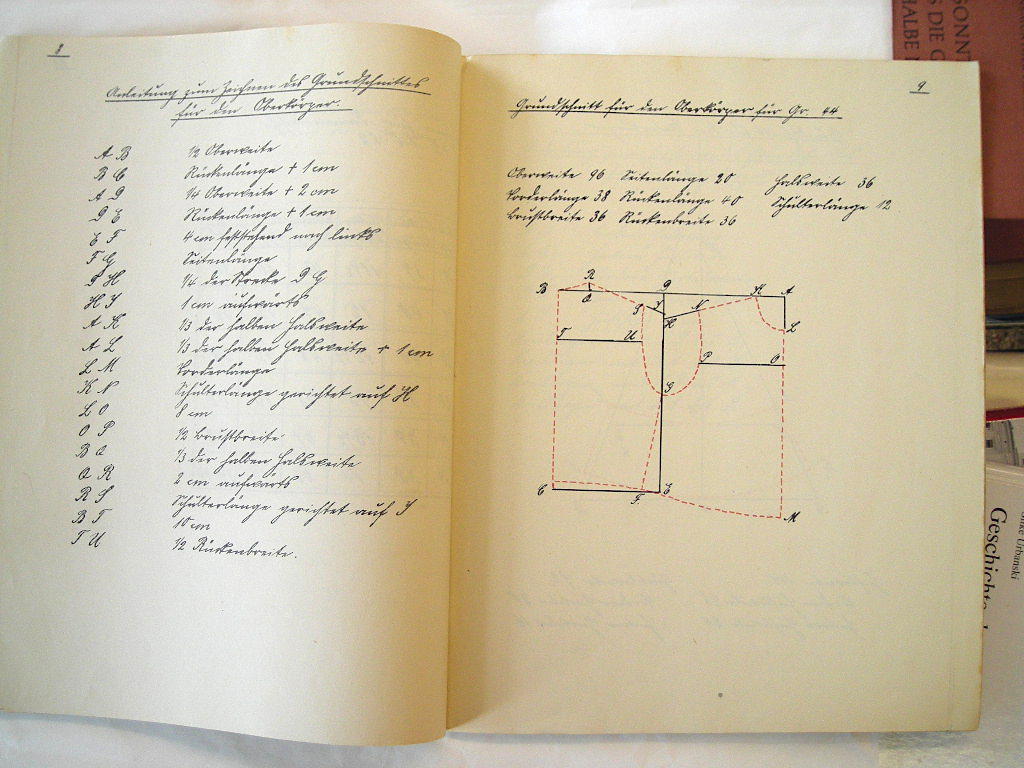 8
Anleitung zum Zeichnen des Grundschnittes
für den Oberkörper.
A B ½ Oberweite
B C Rückenlänge + 1 cm
A D ¼ Oberweite + 2 cm
D E Rückenlänge + 1 cm
E F 4 cm feststehend nach links
F G Seitenlänge
D H ¼ der Strecke D G
H J 1 cm aufwärts
A K ⅓ der halben Halsweite
A L ⅓ der halben Halsweite + 1 cm
L M Vorderlänge
K N Schulterlänge gerichtet auf H
L O 8 cm
O P ½ Brustbreite
B Q ⅓ der halben Halsweite
Q R 2 cm aufwärts
R S Schulterlänge gerichtet auf J
B T 10 cm
T U ½ Rückenbreite.
9
Grundschnitt für den Oberkörper für Gr. 44
Oberweite 96 Seitenlänge 20 Halsweite 36
Vorderlänge 38 Rückenlänge 40 Schulterlänge 12
Brustbreite 36 Rückenbreite 36
R
B Q D K A
S J H N L
T U P O
G
C F E
M
SONN
S DIE G
HALBE
Silke Urbanski
Geschichte